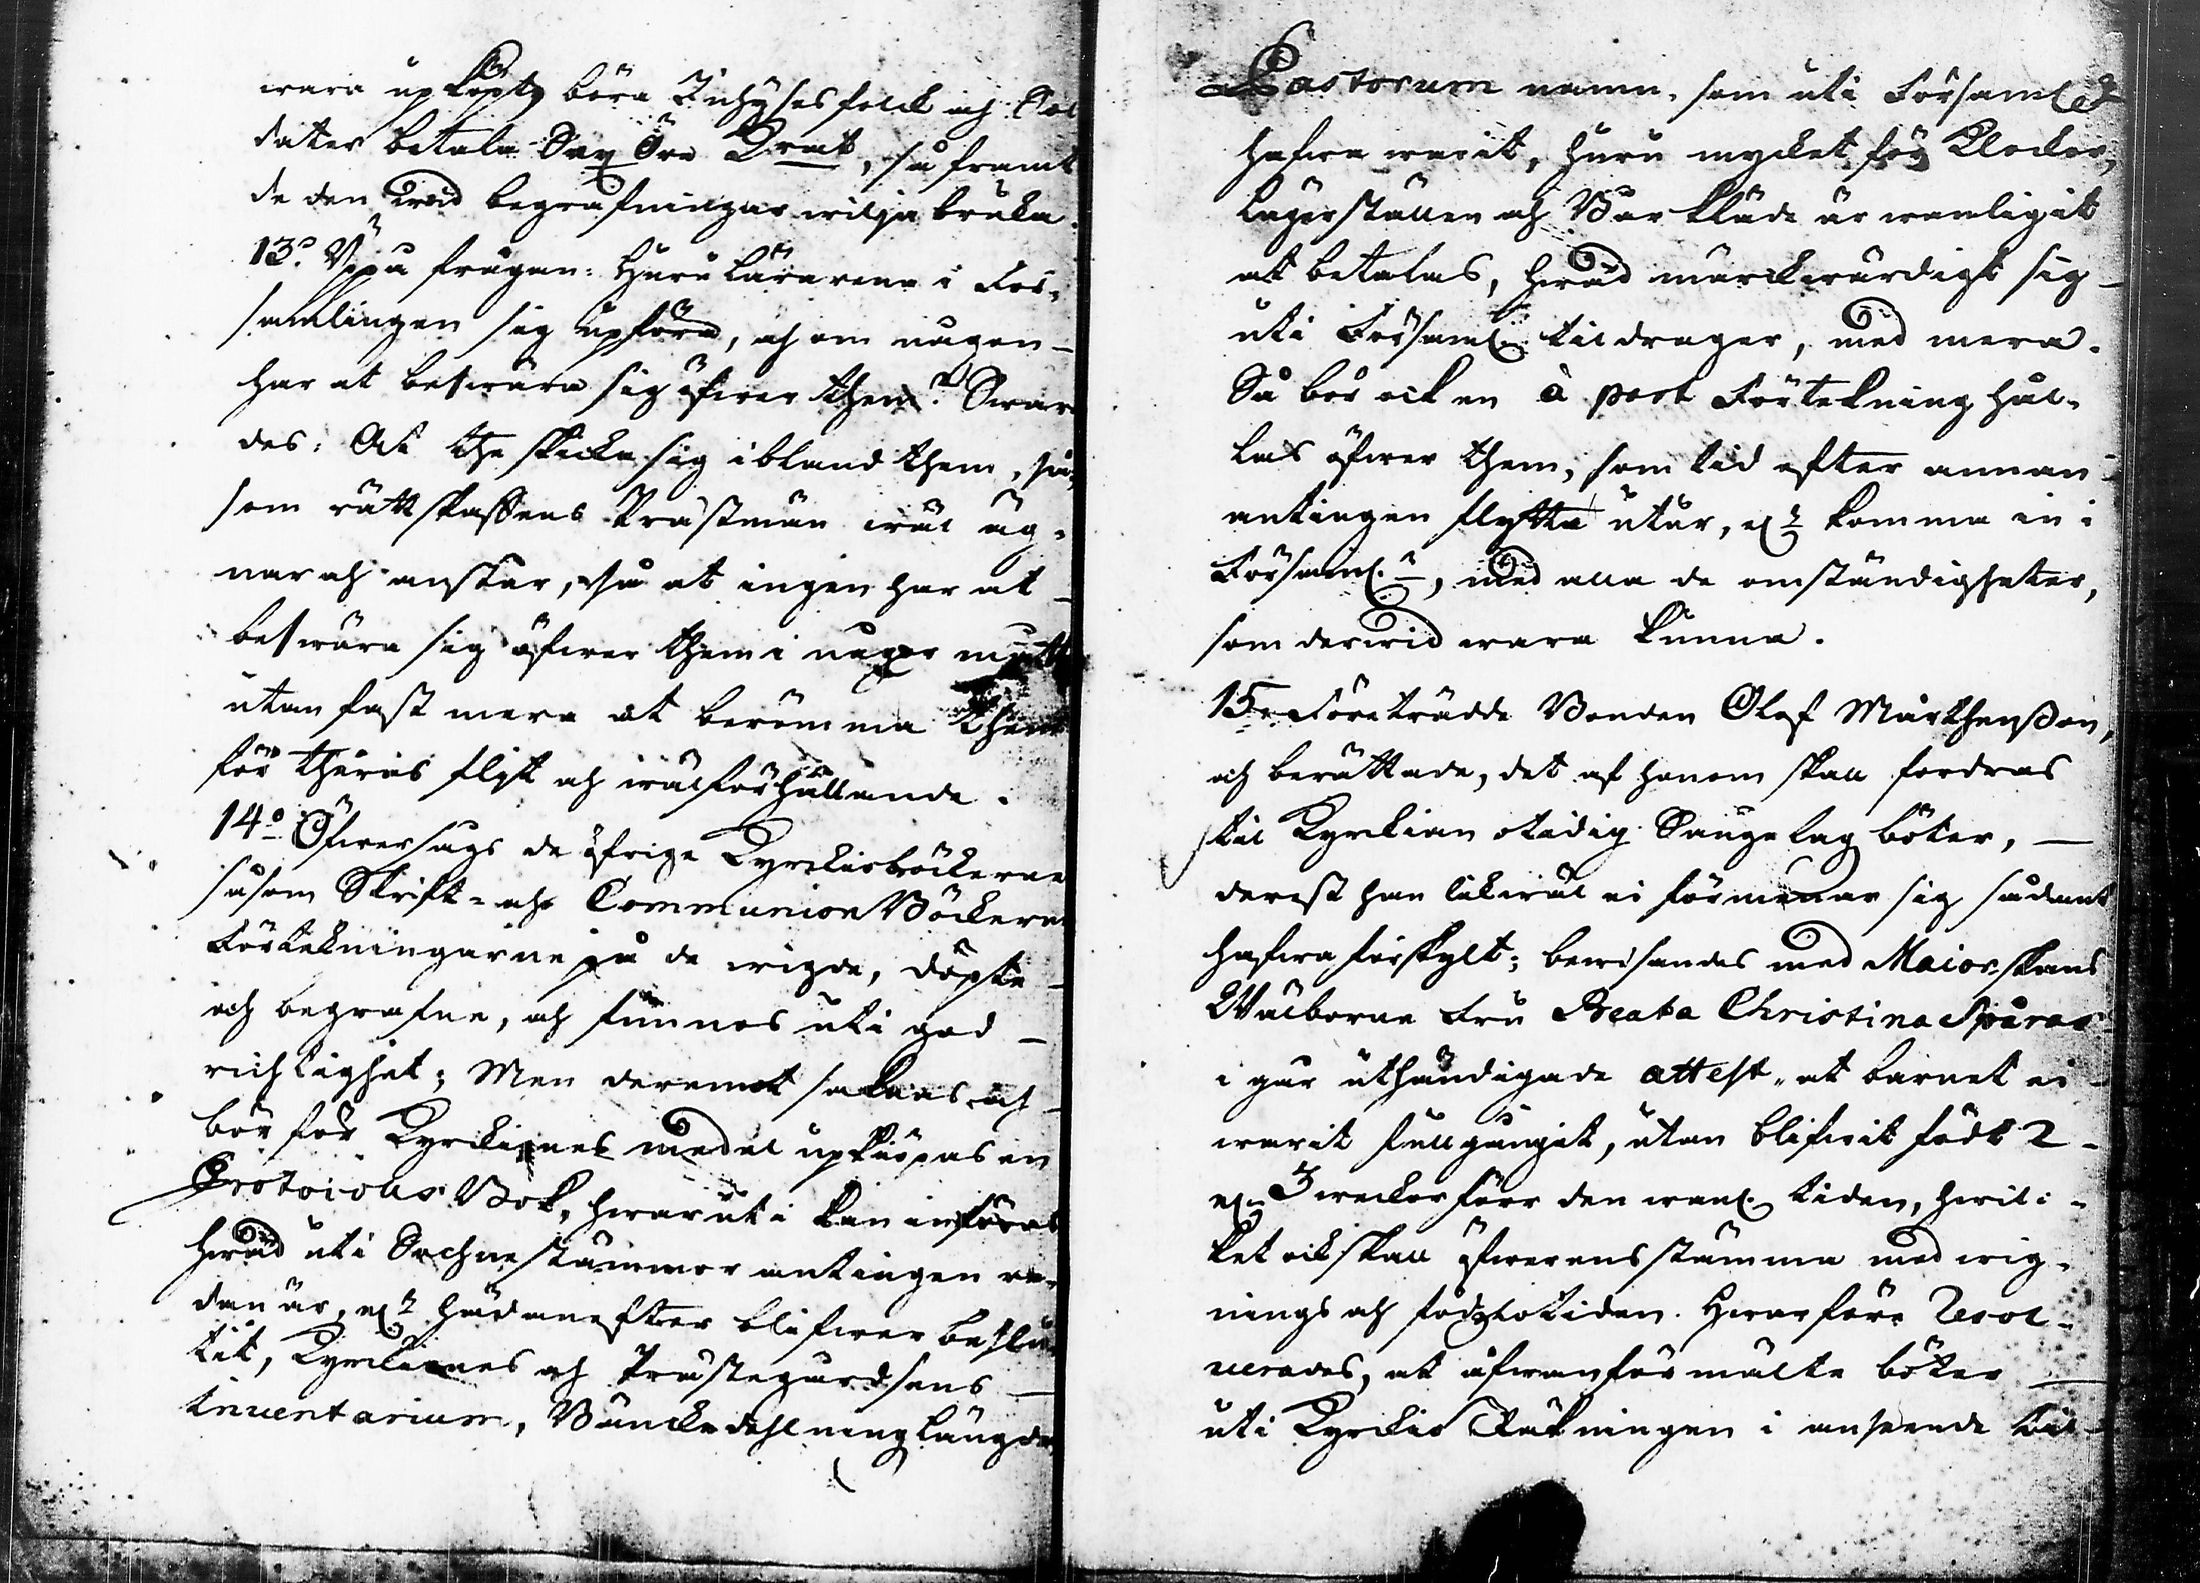 wara upköpt, böra Inhyses folck och Sol
dater betala Sex Öre Kmt, så framt
de den wid begrafningar wilja bruka.
13:o Uppå frågan: Huru Lärarena i För-
samlingen sig upföra, och om någon
har at beswära sig öfwer them? Swara
des: At the skicka sig ibland them, så
som rättskaffens Prästmän wäl äg-
nar och anstår, så at ingen har at
beswära sig öfwer them i någor måtto
utan fast mera at berömma them
för theras flijt och wälförhållande.
14:o Öfwersågs de öfrige Kyrckioböckerne
såsom Skrift- och Communion Böckerne
Förtekningarne på de wigde, döpte
och begrafne, och funnos uti god
richtighet; Men deremot saknas och
bör för Kyrckiones medel upkiöpas en
Protocolls Bok, hwaruti kan införas
hwad uti Sochnestämmor antingen re-
dan är, el:r hädanefter blifwer beslu-
tit, Kyrckiones och Prästegårdsens
inventarium, Bänckedehlning Längde
Pastorum namn, som uti Församl.
hafwa warit, huru mycket för Klockor,
Lägerställen och Bårkläde är wanligit
at betalas, hwad märckwärdigt sig
uti Församl. tildrager, med mera.
Så bör ock en à part Förtekning hål-
las öfwer them, som tid efter annan
antingen flytta utur, el:r komma in i
Församl:n, med alla de omständigheter,
som derwid wara kunna.
15. Företrädde Bonden Olof Mårthensson,
och berättade, det af honom skall fordras
til Kyrckian otidig Sängelag böter,
derest han likwäl ei förmenar sig sådant
hafwa förskylt; bewisandes med Maiorskans
Wälborne Fru Beata Christina Spåras
i går uthändigade attest, at barnet ei
warit fullgångit, utan blifwit födt 2
el. 3 weckor förr den wanl. tiden, hwil-
ket ock skall öfwerensstämma med wig-
nings och födzlotiden. Hwarföre Resol-
verades, at ofwanförmälte böter
uti Kyrckio Räkningen i anseende til